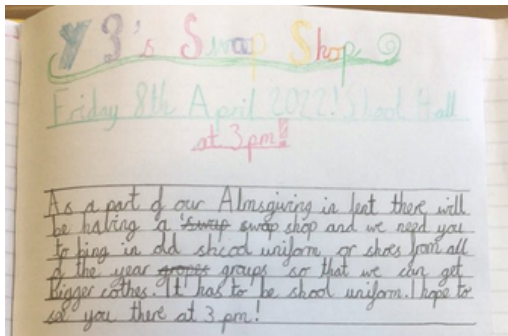 Y3's Swap Shop
Friday 8th April 2022! Shool Hall
at 3pm!
As a part of our Almsgiving in lent there will
be hating a swap swap shop and we need you
to bing in old shcool uniform or shoes from all
of the year gropes groups so that we can get
bigger cothes. It has to be shool uniform. I hope to
se you there at 3 pm!